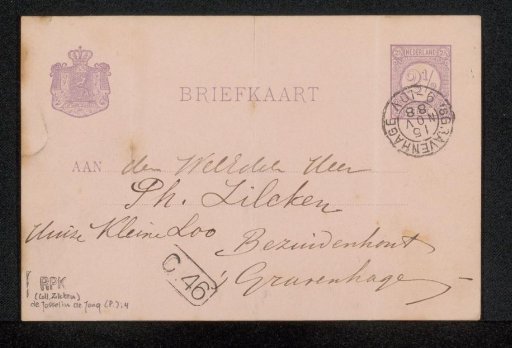 NEDERLAND
2½
BRIEFKAART
'S GRAVENHAGE
15
NOV
88
AAN den WelEdele Heer
Ph. Zilcken
Huize Kleine Loo
Bezuidenhout
's Gravenhage
C.46
RPK
(coll. Zilcken)
de Josselin de Jong (P.): 4